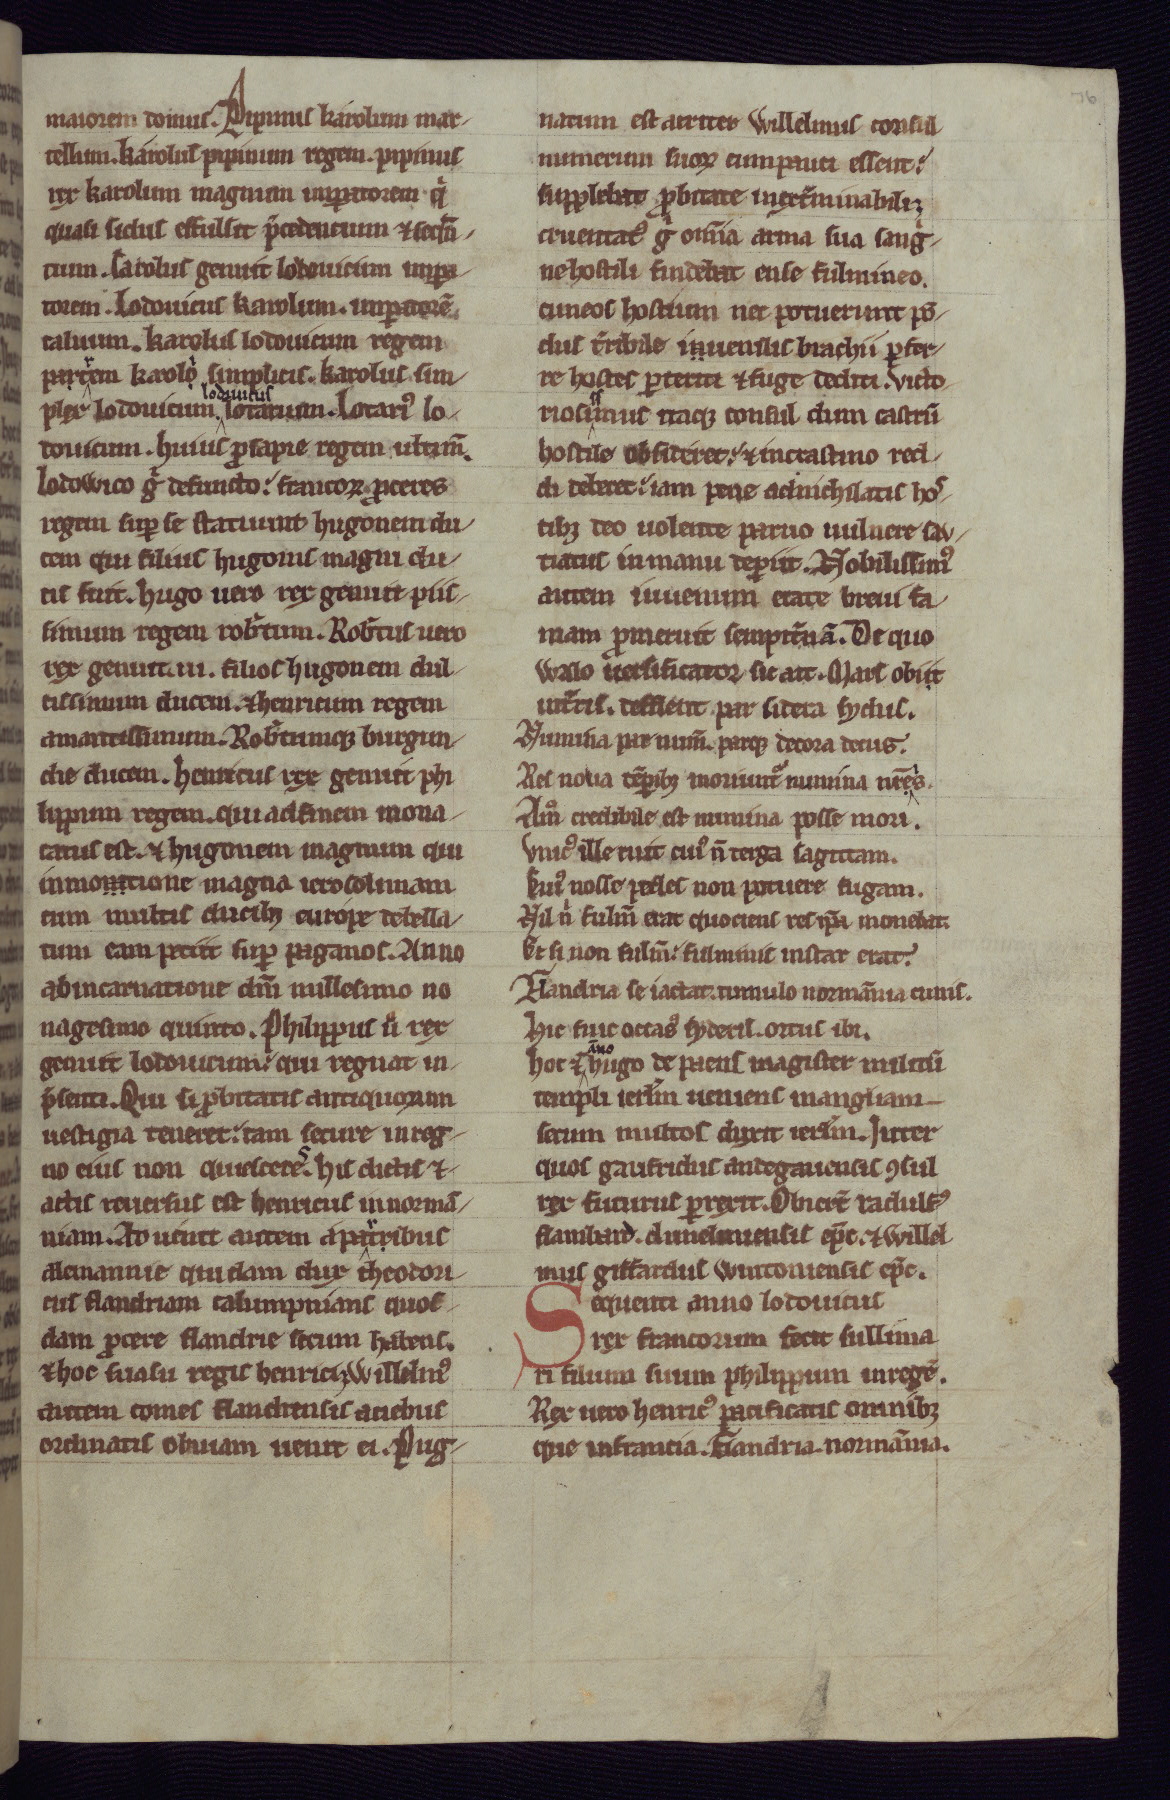 maiorem domus. Pipinus karolum mar-
tellum. karolus pipinum regem. pipinus
rex karolum magnum imperatorem q̇
quasi sidus effulsit p̄cedentium ⁊ secūn
tium. Carolus genuit lodouicum impa-
torem. Lodouicus karolum. imperatorē
caluum. karolus lodouicum regem
patrem karoli simplicis. karolus sim-
plex lodouicum. lodouicus lotarium. Lotari⁹ lo-
douicum. huius prosapie regem ultimū.
Lodowico g̊ defuncto: francoꝝ proceres
regem sup se statuunt hugonem du-
cem qui filius hugonis magni du-
cis fuit. hugo uero rex genuit piis-
simum regem rob̄tum. Rob̄tus uero
rex genuit .iii. filios hugonem dul-
cissimum ducem. ⁊ henricum regem
amantissimum. Rob̄tumqꝫ burgun-
die ducem. henricus rex genuit phi
lippum regem. qui ad finem mona-
catus est. ⁊ hugonem magnum qui
in motione magna ierosolimam
cum multis ducibꝫ europe debella-
tum eam petiit sup paganos. Anno
ab incarnatione dn̄i millesimo no
nagesimo quinto. Philippus ū rex
genuit lodouicum: qui regnat in-
p̄senti. Qui si probitatis antiquorum
uestigia teneret: tam secure in reg-
no eius non quiesceres. his dictis ⁊
actis reuersus est henricus in normā-
niam. Aduenit autem a partibus
alemannie quidam dux theodori
cus flandriam calumpnians quos-
dam procere flandrie secum habens.
⁊ hoc suasu regis henrici. Willelm⁹
autem comes flandrensis aciebus
ordinatis obuiam uenit ei. Pug-
natum est acriter Willelmus consul
numerum suoꝝ cum pauci essent:
supplebat probitate inextiminabili.
cruentat⁹ g̊ omīa arma sua sangi-
ne hostili findebat ense fulmineo.
cuneos hostium nec potuerunt pō-
dus t̄ribile iuuenilis brachii p̄fer-
re hostes p̄territi ⁊ fuge dediti. Victo-
riosissimus itaqꝫ consul dum castrū
hostile obsideret: ⁊ in crastino red-
di deberet: iam pene adnichilatis hos-
tibꝫ deo uolente paruo uulnere sau-
tiatus in manu dep̄iit. Nobilissim⁹
autem iuuenum etate breui fa
mam promeruit sempit̄nā. De quo
Walo uersificator sic ait. Mars obiit
int̄ris. defflent par sidera sydus.
Numina par num̄. parqꝫ decora decus.
Res noua tēpibꝫ moriunt᷑ numina nr̄is.
Am̊ credibile est numina posse mori.
Vnic⁹ ille ruit cui⁹ n̄ terga sagittam.
Cui⁹ nosse pedes non potuere fugam.
Nil n̄ fulm̄ erat quociens res ip̄a monebat.
Et si non fulm̄: fulminis instar erat.
Flandria se iactat. tumulo normānia cunis.
Hic fuit occas⁹ syderis. ortus ibi.
hoc anno hugo de paens magister militū
templi ierl̄m ueniens in angliam
secum multos duxit ierl̄m. Inter
quos gaufridus andegauensis ꝯsul
rex futurus prexit. Obierē radulf⁹
flambard. dunelmensis epc̄. ⁊ willel
mus giffardus wintoniensis epc̄.
Sequenti anno lodouicus
rex francorum fecit sullima
ri filium suum philippum in regē.
Rex uero henric⁹ pacificatis omnibꝫ
que in francia. flandria. normānia.